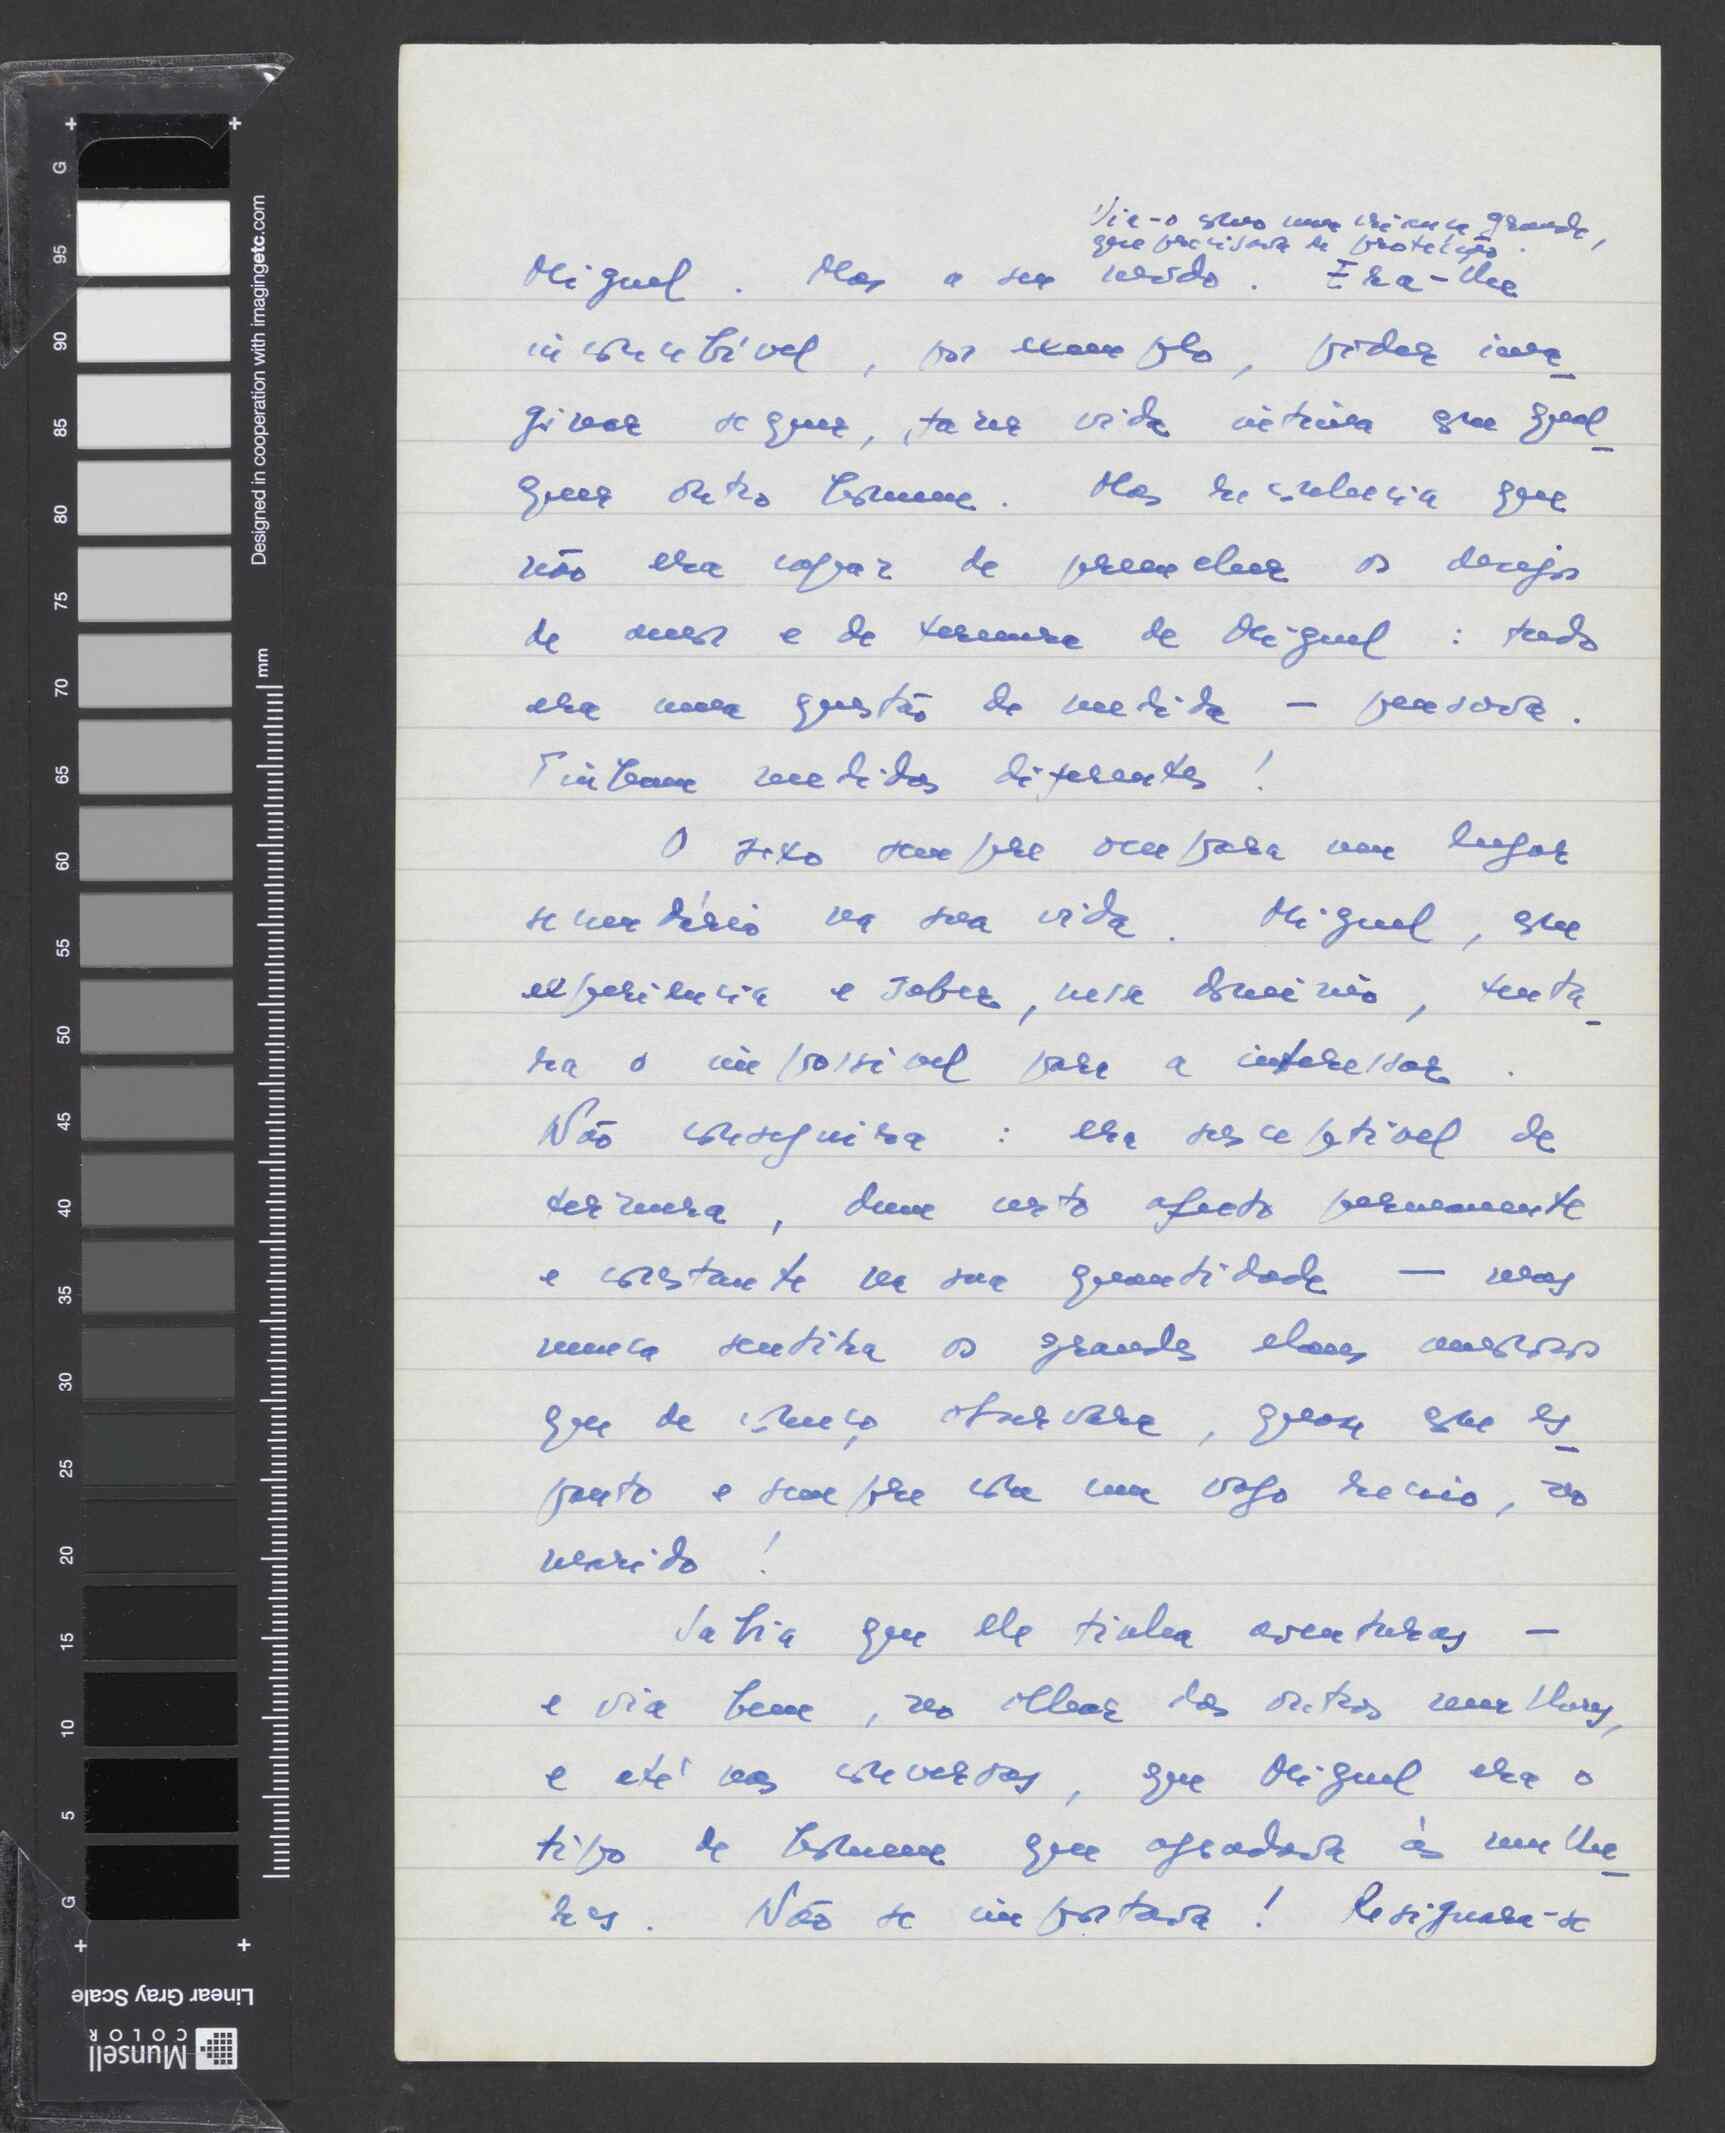 Via-o como uma criança grande,
que precisava de protecção.
Miguel. Mas a seu modo. Era-lhe
inconcebível, por exemplo, poder ima-
ginar sequer, ter vida íntima com qual-
quer outro homem. Mas reconhecia que
não era capaz de preencher os desejos
de amor e de ternura de Miguel : tudo
era uma questão de medida — pensava.
Tinham medidas diferentes !
O sexo sempre ocupara um lugar
secundário na sua vida. Miguel, com
experiência e saber, nesse domínio, tenta-
ra o impossível para a interessar .
Não conseguira : era susceptível de
ternura, dum certo afecto permanente
e constante na sua quantidade — mas
nunca sentira os grandes elans amorosos
que de começo observara, quase com es-
panto e sempre com um vago receio, no
marido !
Sabia que ele tinha aventuras —
e via bem, no olhar das outras mulheres,
e até nas conversas, que Miguel era o
tipo de homem que agradava às mulhe-
res. Não se importava ! Resignara-se
Designed in cooperation with imagingetc.com
mm
G 95 90 85 80 75 70 65 60 55 50 45 40 35 30 25 20 15 10 5 G
Linear Gray Scale
Munsell
COLOR